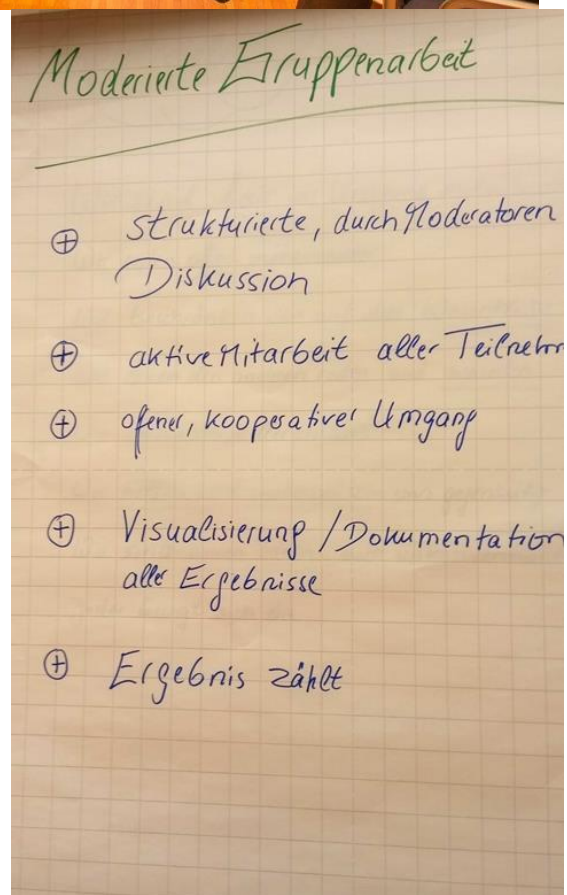 Moderierte Gruppenarbeit
⊕ strukturierte, durch Moderatoren
Diskussion
⊕ aktive Mitarbeit aller Teilnehm
⊕ ofener, kooperativer Umgang
⊕ Visualisierung / Dokumentation
aller Ergebnisse
⊕ Ergebnis zählt